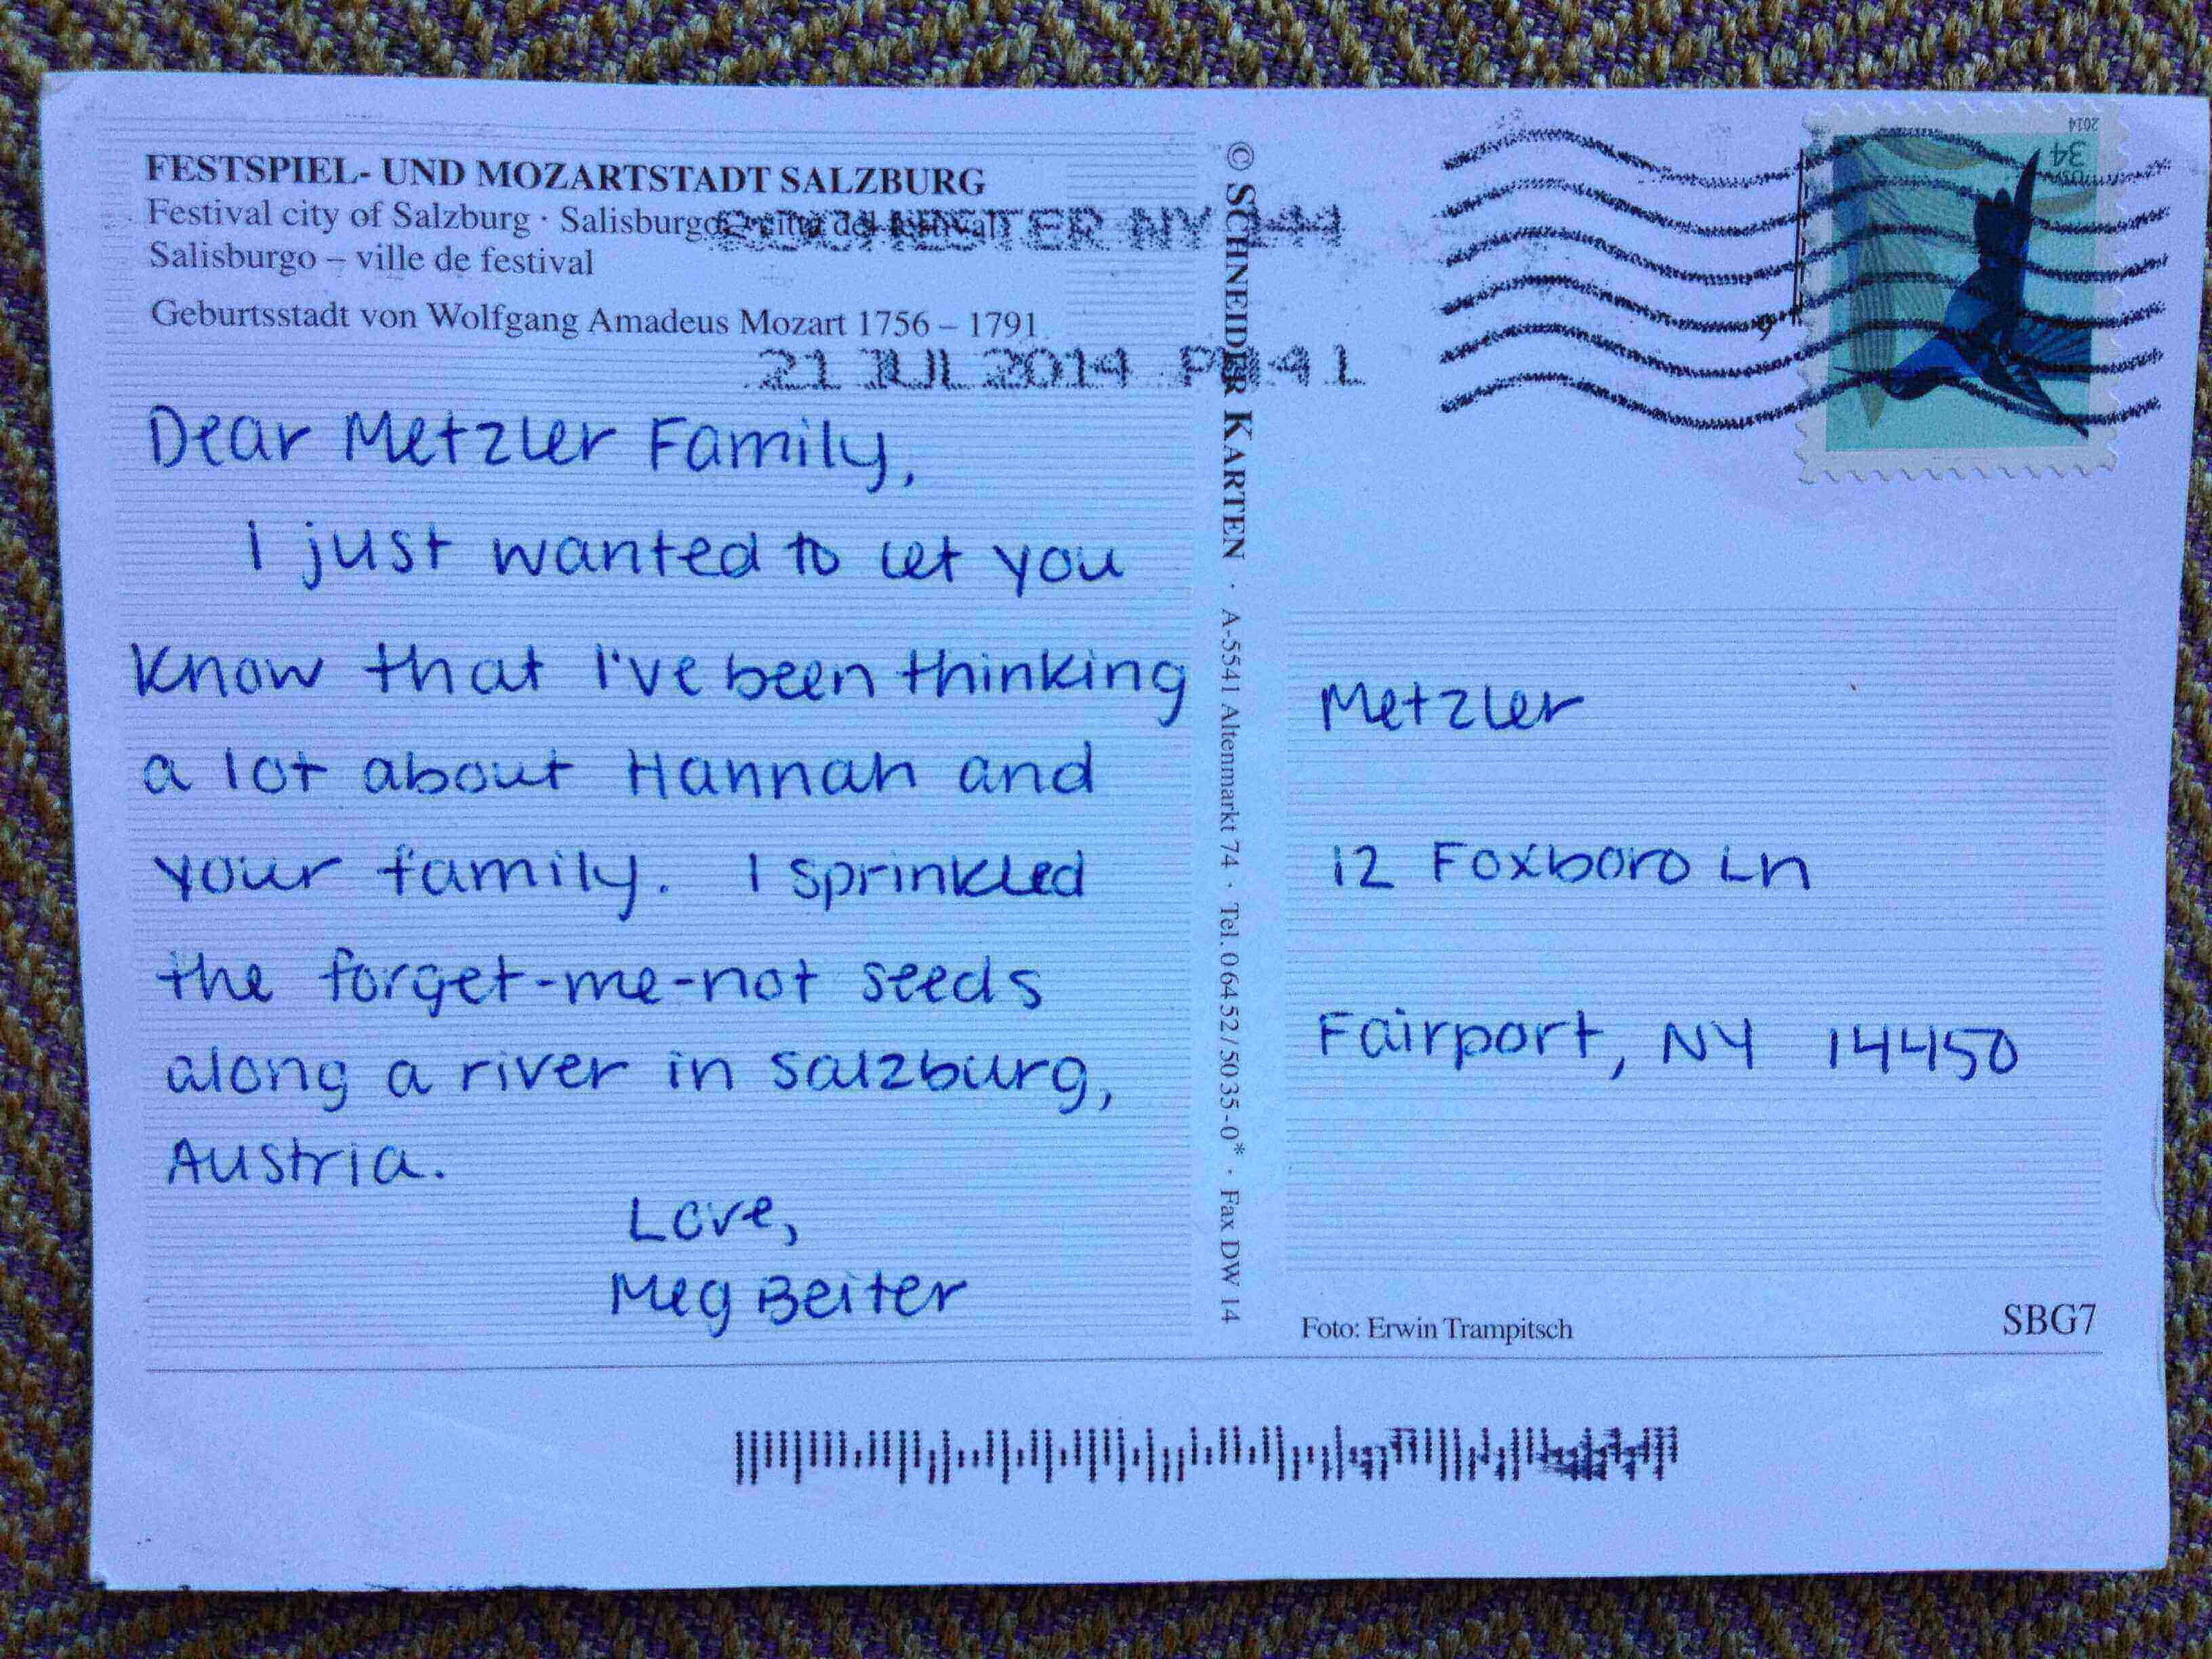 FESTSPIEL- UND MOZARTSTADT SALZBURG
Festival city of Salzburg · Salisburgo – città del festival
Salisburgo – ville de festival
Geburtsstadt von Wolfgang Amadeus Mozart 1756 – 1791
ROCHESTER NY 144
21 JUL 2014 PM 4 L
Dear Metzler Family,
I just wanted to let you
know that I've been thinking
a lot about Hannah and
your family. I sprinkled
the forget-me-not seeds
along a river in Salzburg,
Austria.
Love,
Meg Beiter
© SCHNEIDER KARTEN · A-5541 Altenmarkt 74 · Tel. 06452/5035-0* · Fax DW 14
2014
34
USA
Metzler
12 Foxboro Ln
Fairport, NY 14450
Foto: Erwin Trampitsch
SBG7